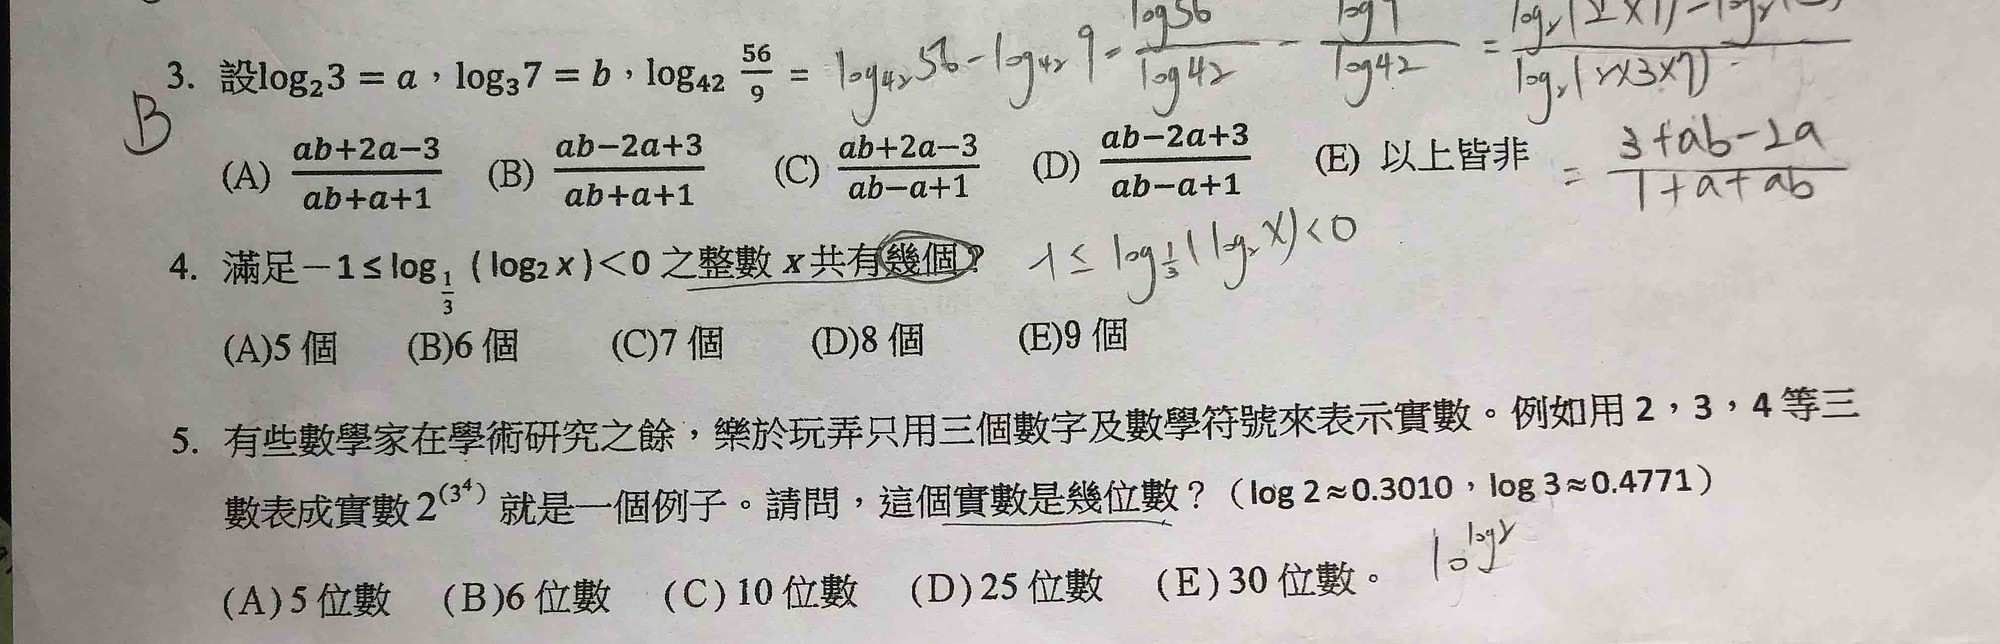 3. 設log₂3 = a，log₃7 = b，log₄₂ 56/9 = log₄₂56 - log₄₂9 = log56/log42 - log9/log42 =
B
(A) ab+2a−3/ab+a+1 (B) ab−2a+3/ab+a+1 (C) ab+2a−3/ab−a+1 (D) ab−2a+3/ab−a+1 (E) 以上皆非 = 3+ab-2a/1+a+ab
4. 滿足−1≤log_(1/3) (log₂x)<0 之整數 x 共有幾個？ -1≤ log_(1/3)(log₂X)<0
(A)5 個 (B)6 個 (C)7 個 (D)8 個 (E)9 個
5. 有些數學家在學術研究之餘，樂於玩弄只用三個數字及數學符號來表示實數。例如用 2，3，4 等三
數表成實數 2^(3⁴) 就是一個例子。請問，這個實數是幾位數？（log 2≈0.3010，log 3≈0.4771）
10^log2
(A)5 位數 (B)6 位數 (C)10 位數 (D)25 位數 (E)30 位數。